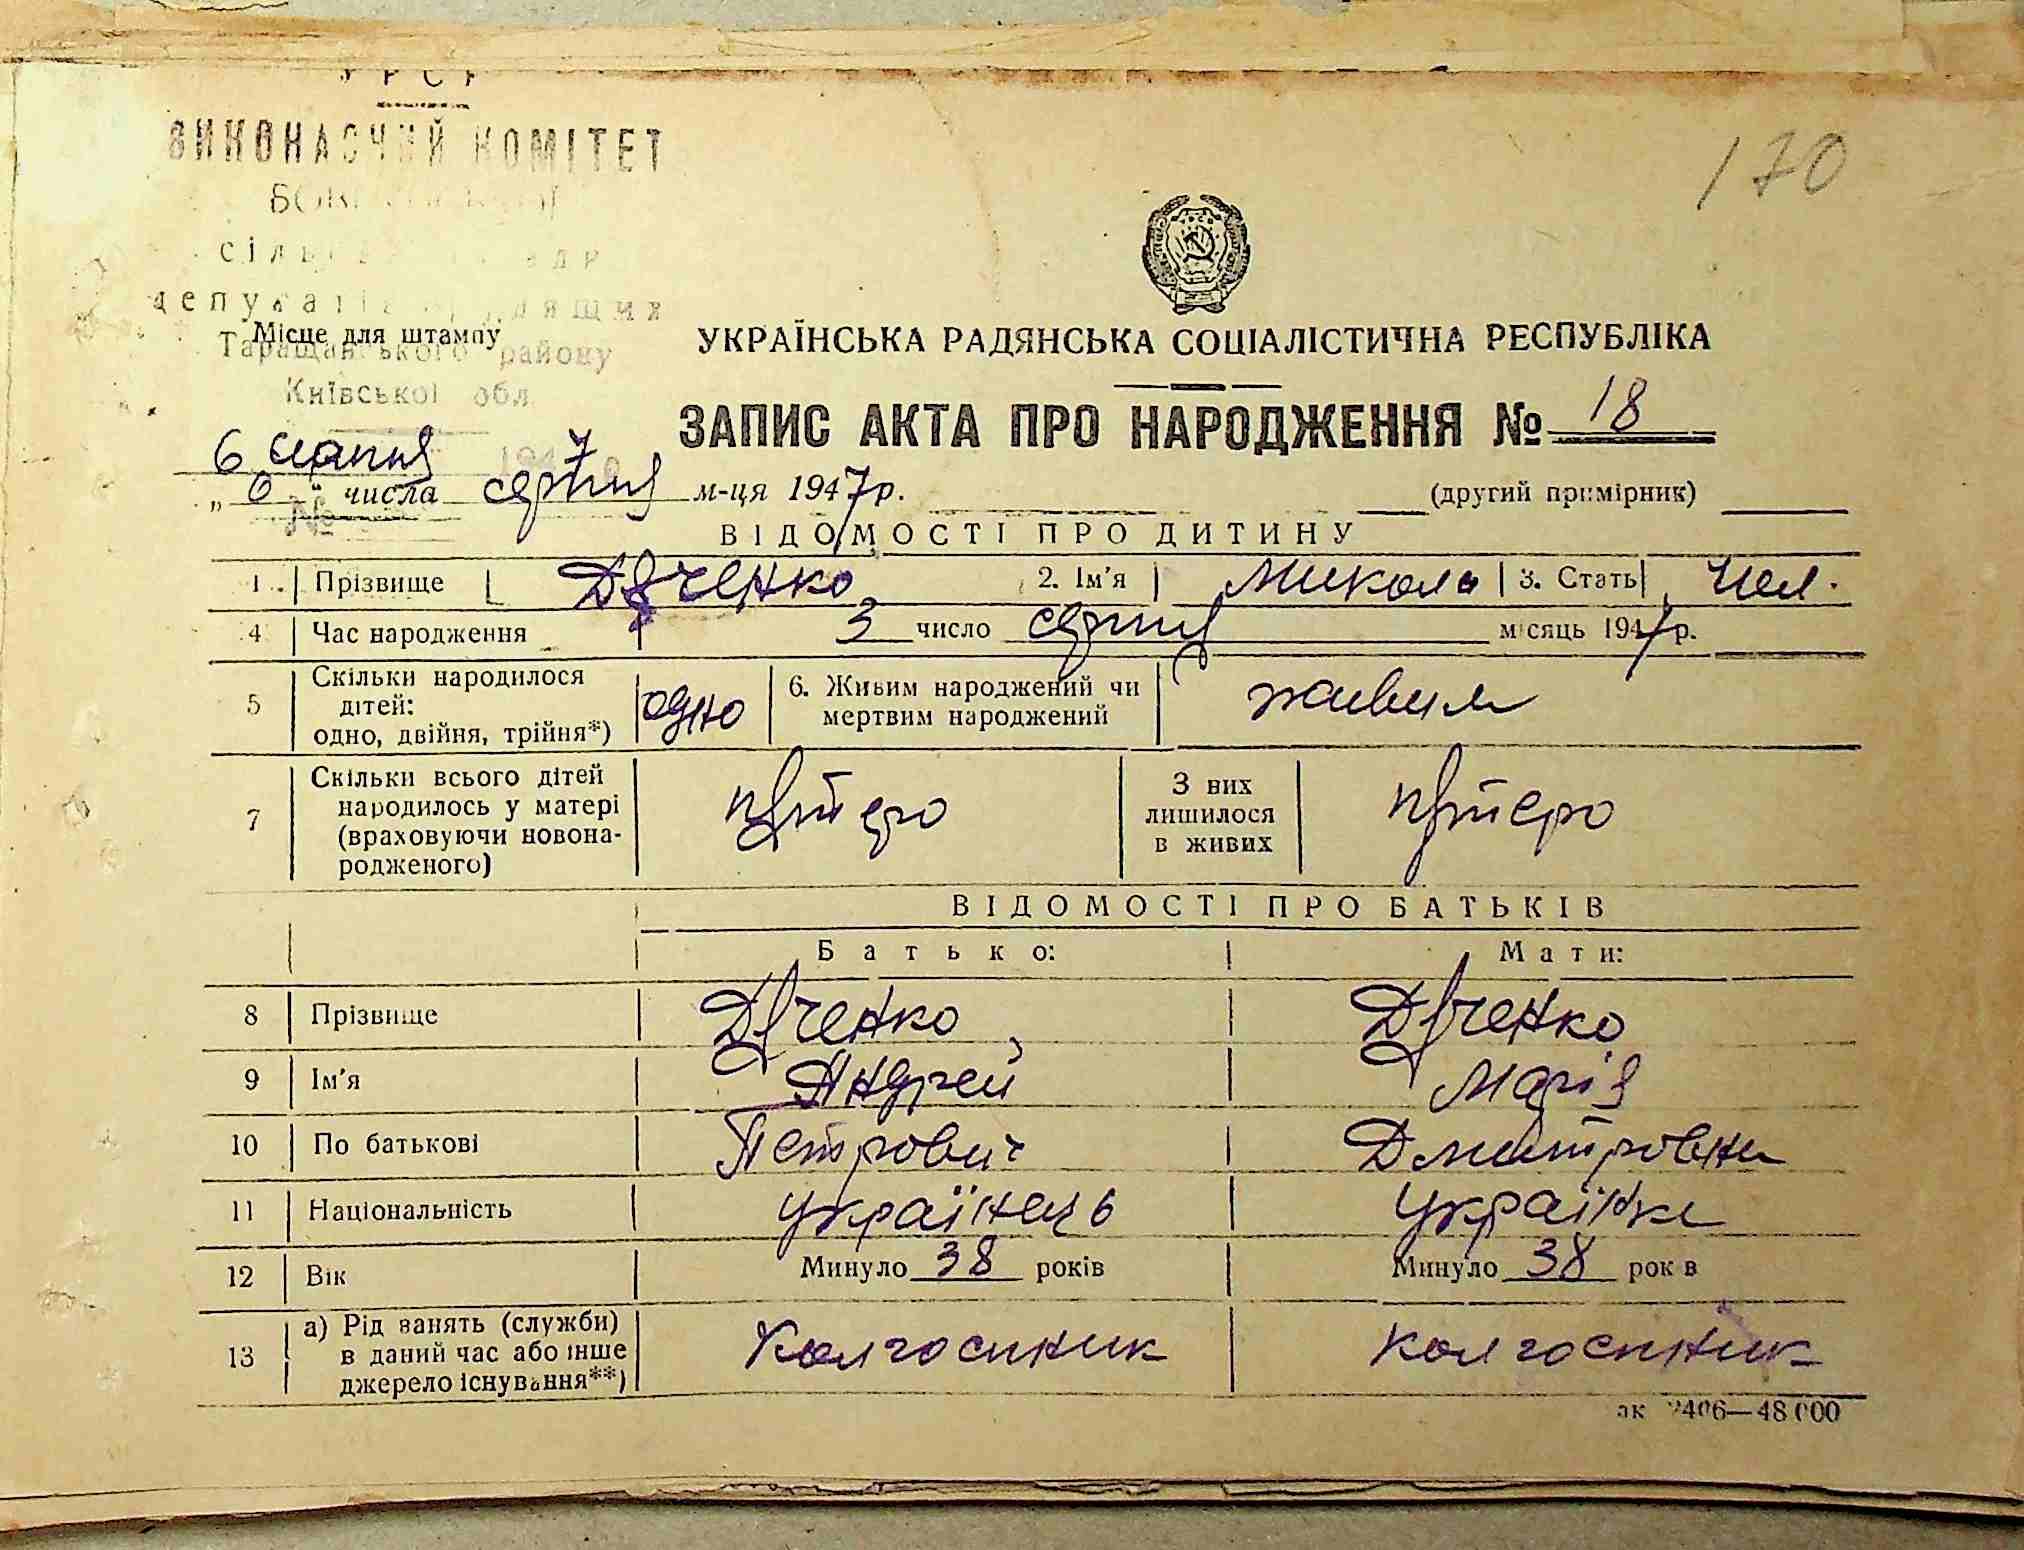 УРСР
ВИКОНАВЧИЙ КОМІТЕТ
депутатів трудящих
Таращанського району
Київської обл.
Місце для штампу
170
УКРАЇНСЬКА РАДЯНСЬКА СОЦІАЛІСТИЧНА РЕСПУБЛІКА
ЗАПИС АКТА ПРО НАРОДЖЕННЯ № 18
6 серпня 7
„ 6 " числа серпня м-ця 1947р.
№
(другий примірник)
ВІДОМОСТІ ПРО ДИТИНУ
1. Прізвище Дяченко 2. Ім'я Микола 3. Стать Чол.
4 Час народження 3 число серпня місяць 1947р.
5 Скільки народилося дітей: одно, двійня, трійня*) одно 6. Живим народжений чи мертвим народжений живим
7 Скільки всього дітей народилось у матері (враховуючи новонародженого) пятеро З них лишилося в живих пятеро
ВІДОМОСТІ ПРО БАТЬКІВ
Батько: Мати:
8 Прізвище Дяченко Дяченко
9 Ім'я Андрей Марія
10 По батькові Петрович Дмитровна
11 Національність українець українка
12 Вік Минуло 38 років Минуло 38 років
13 а) Рід занять (служби) в даний час або інше джерело існування**) Колгоспник колгоспник
зк 2406—48 000